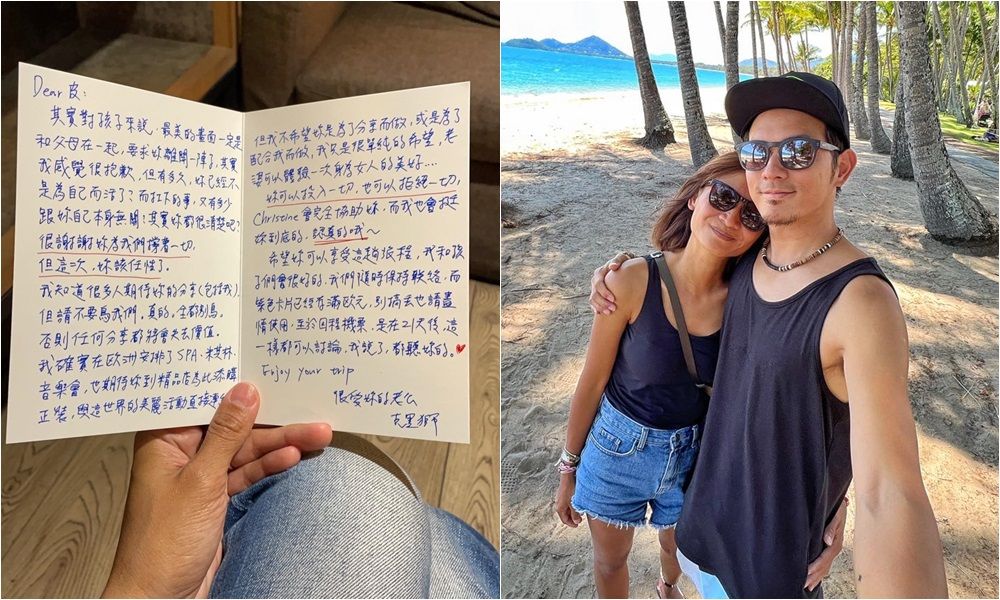 Dear 皮:
其實對孩子來說,最美的畫面一定是
和父母在一起,要求妳離開一陣子,其實
我感覺很抱歉,但有多久,妳已經不
是為自己而活了?而扛下的事,又有多少
跟妳自己本身無關?其實妳都很清楚吧?
很謝謝妳為我們撐著一切,
但這次,妳該任性了。
我知道很多人期待妳的分享(包括我),
但請不要為我們,真的,全都別鳥。
否則任何分享都將會失去價值。
我確實在歐洲安排了SPA、米其林、
音樂會,也期待妳到精品店為此添購
正裝,與這世界的美麗活動直接
但我不希望妳是為了分享而做,或是為了
配合我而做,我只是很單純的希望,老
婆可以體驗一次身為女人的美好…
妳可以投入一切,也可以拒絕一切,
Christine會完全協助妳,而我也會挺
妳到底的,認真的哦~
希望妳可以享受這趟旅程,我和孩
子們會很好的,我們隨時保持聯絡,而
紫色卡片已經存滿歐元,別搞丟也請盡
情使用,至於回程機票,是在21天後,這
一樣都可以討論,我說了,都聽妳的。
Enjoy your trip
很愛妳的老公
克里